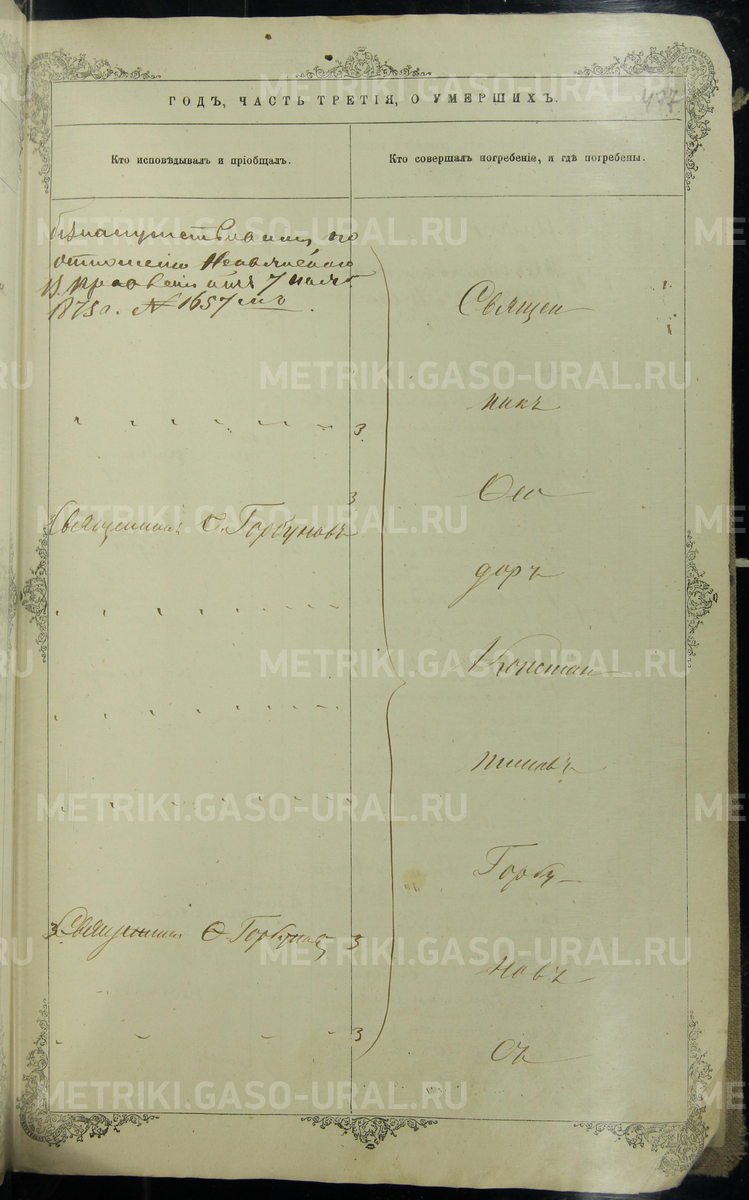 ГОДЪ, ЧАСТЬ ТРЕТІЯ, О УМЕРШИХЪ.
477
Кто исповѣдывалъ и пріобщалъ.
Кто совершалъ погребеніе, и гдѣ погребены.
по
отношенію Невьянскаго
7
1875 г. № 1657
Священникъ Ѳ. Горбуновъ
Священникъ Ѳ. Горбуновъ
Священ
никъ
Ѳео
доръ
Констан
тиновъ
Горбу
новъ
Съ
METRIKI.GASO-URAL.RU